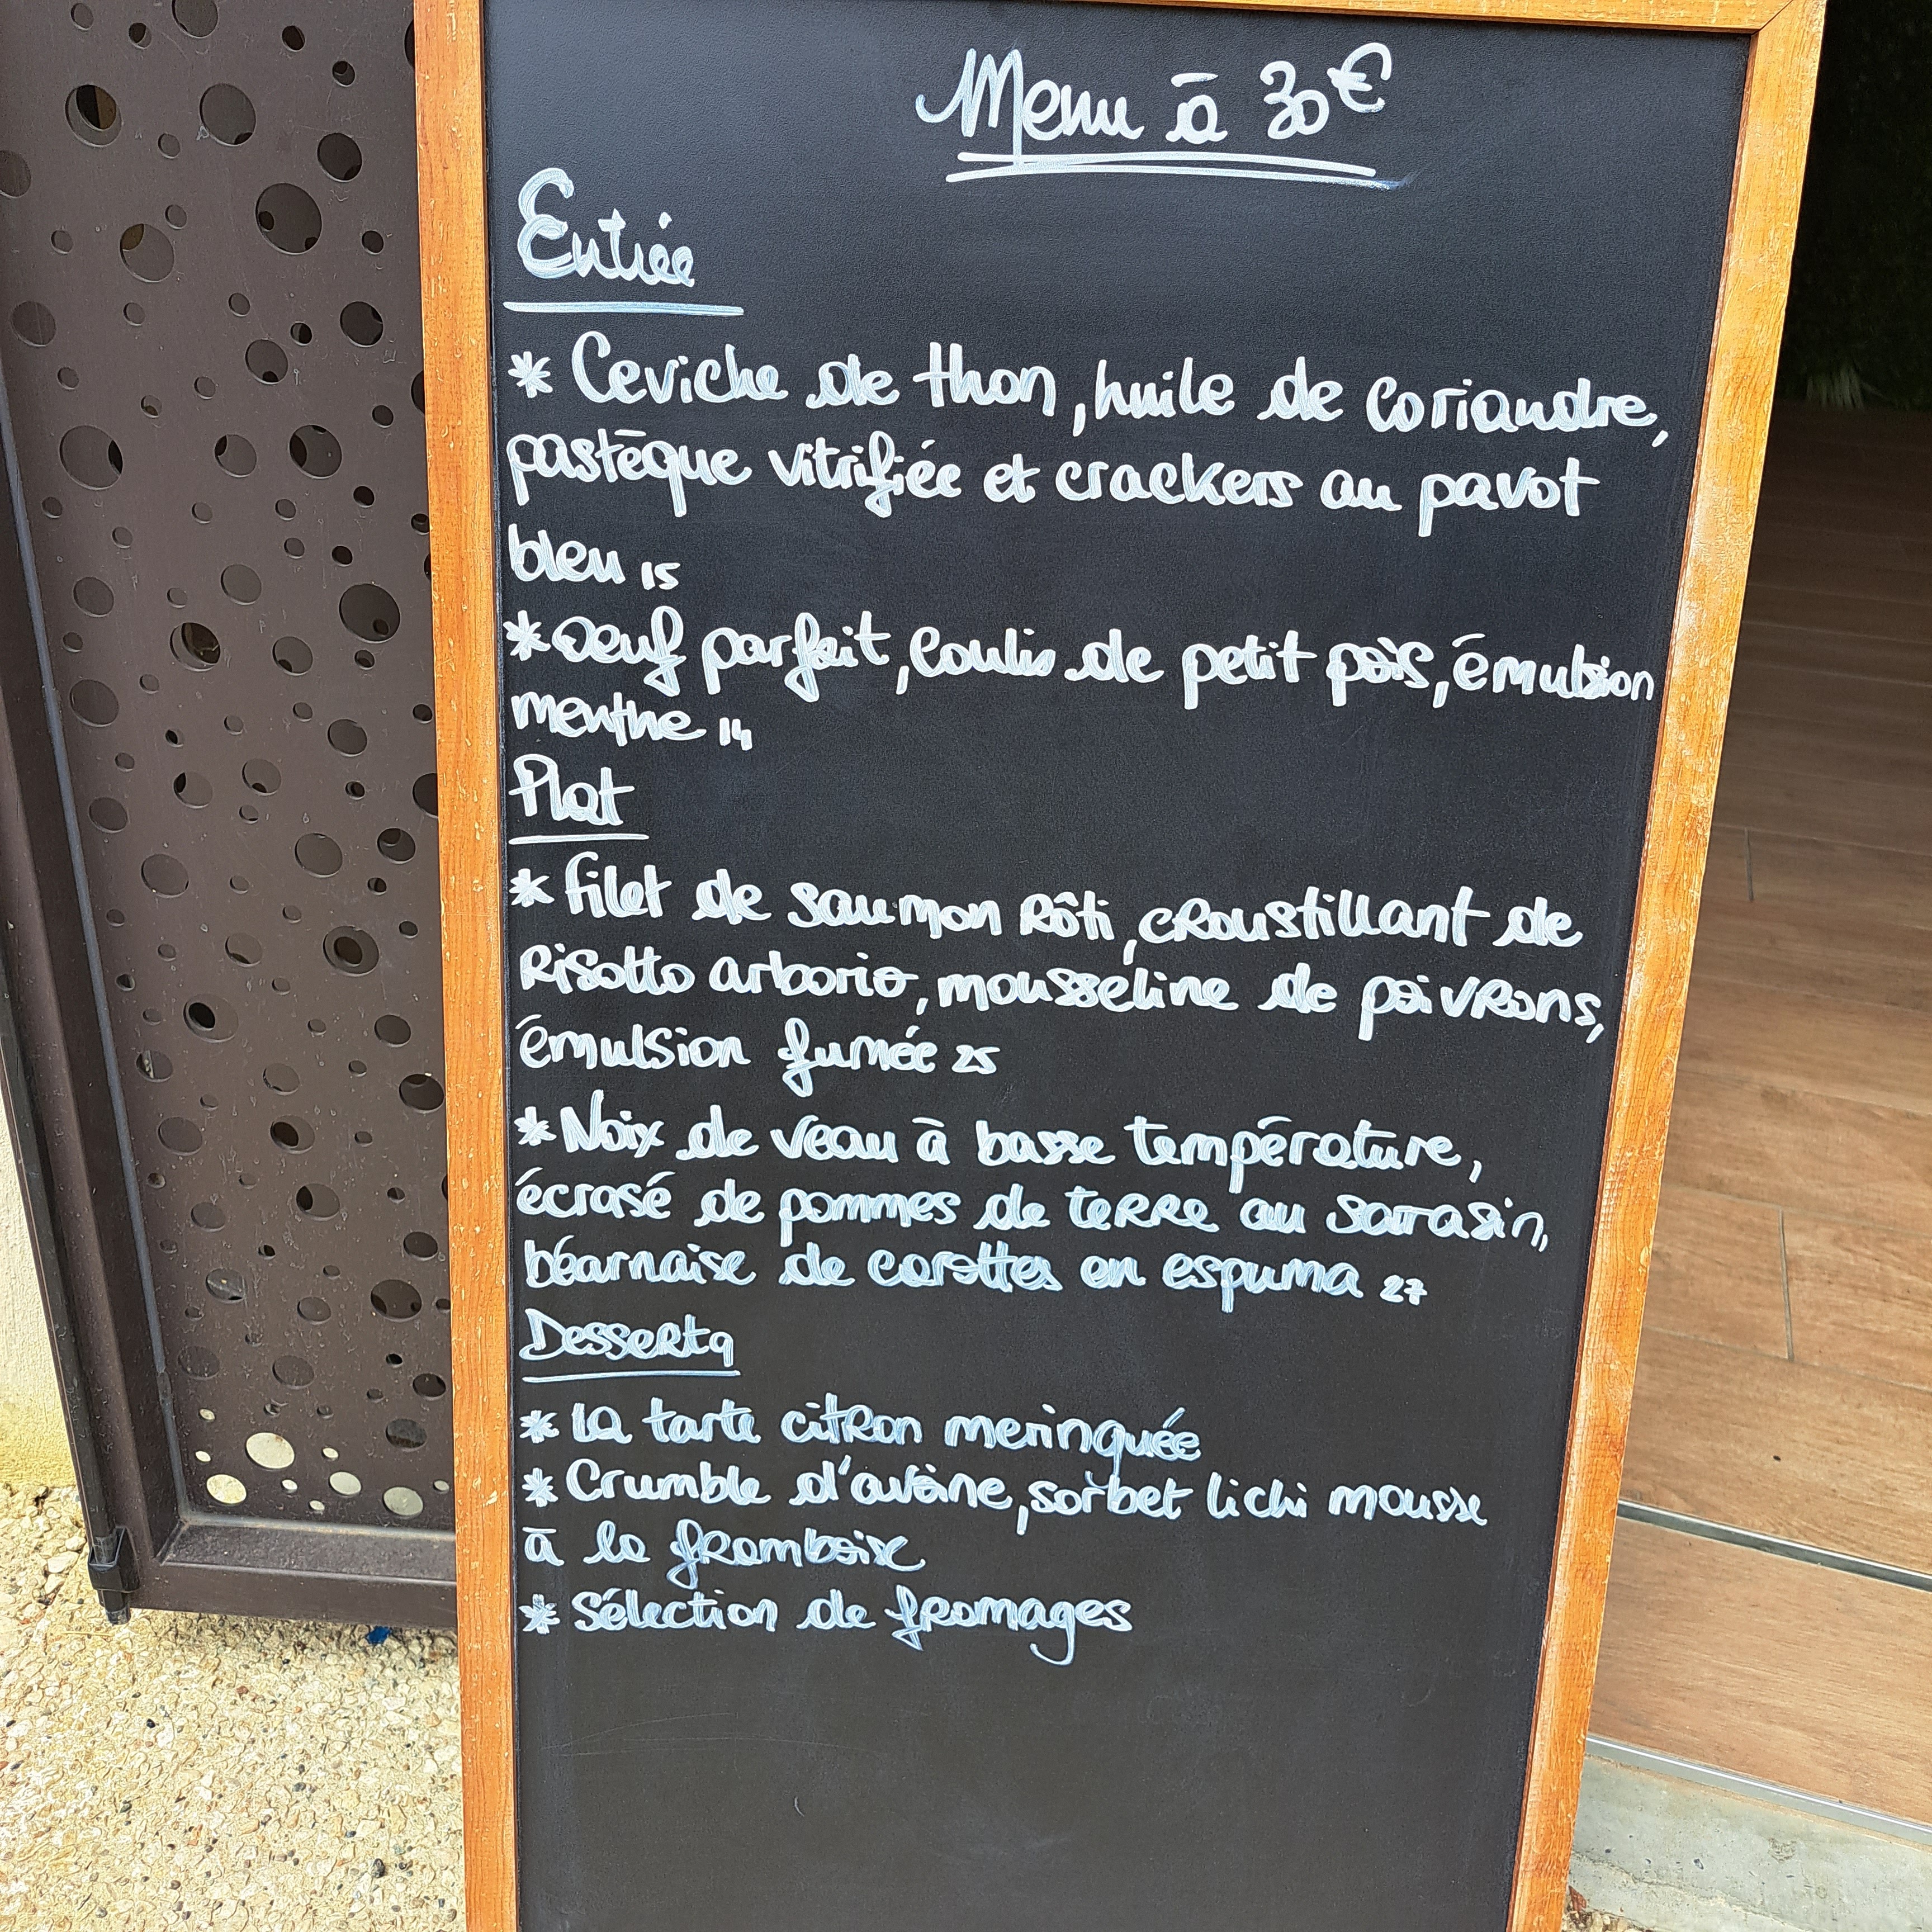 Menu à 30€
Entrée
* Ceviche de thon, huile de coriandre,
pastèque vitrifiée et crackers au pavot
bleu 15
* Oeuf parfait, coulis de petit pois, émulsion
menthe 14
Plat
* Filet de saumon Rôti, cRoustillant de
Risotto arborio, mousseline de poivRons,
émulsion fumée 25
* Noix de veau à basse température,
écrasé de pommes de teRRe au sarrasin,
béarnaise de carottes en espuma 27
Dessert 9
* La tarte citRon meringuée
* Crumble d'avoine, sorbet lichi mousse
à la fRamboise
* Sélection de fRomages